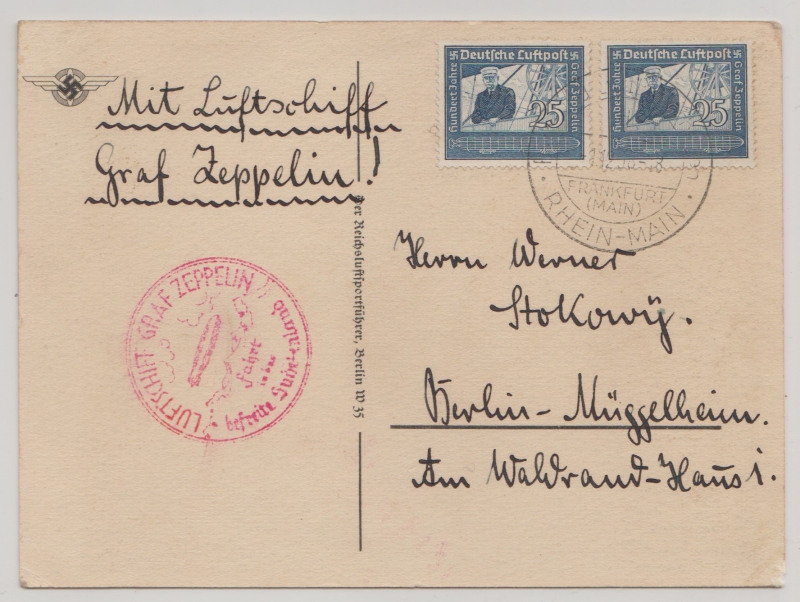 Mit Luftschiff
Graf Zeppelin!
Deutsche Luftpost
Hundert Jahre
Graf Zeppelin
25
Deutsche Luftpost
Hundert Jahre
Graf Zeppelin
25
FRANKFURT
(MAIN)
RHEIN-MAIN
Der Reichsluftsportführer, Berlin W 35
LUFTSCHIFF GRAF ZEPPELIN
Fahrt
in das
befreite Sudetenland
Herrn Werner
Stokowÿ.
Berlin-Müggelheim.
Am Waldrand-Haus 1.